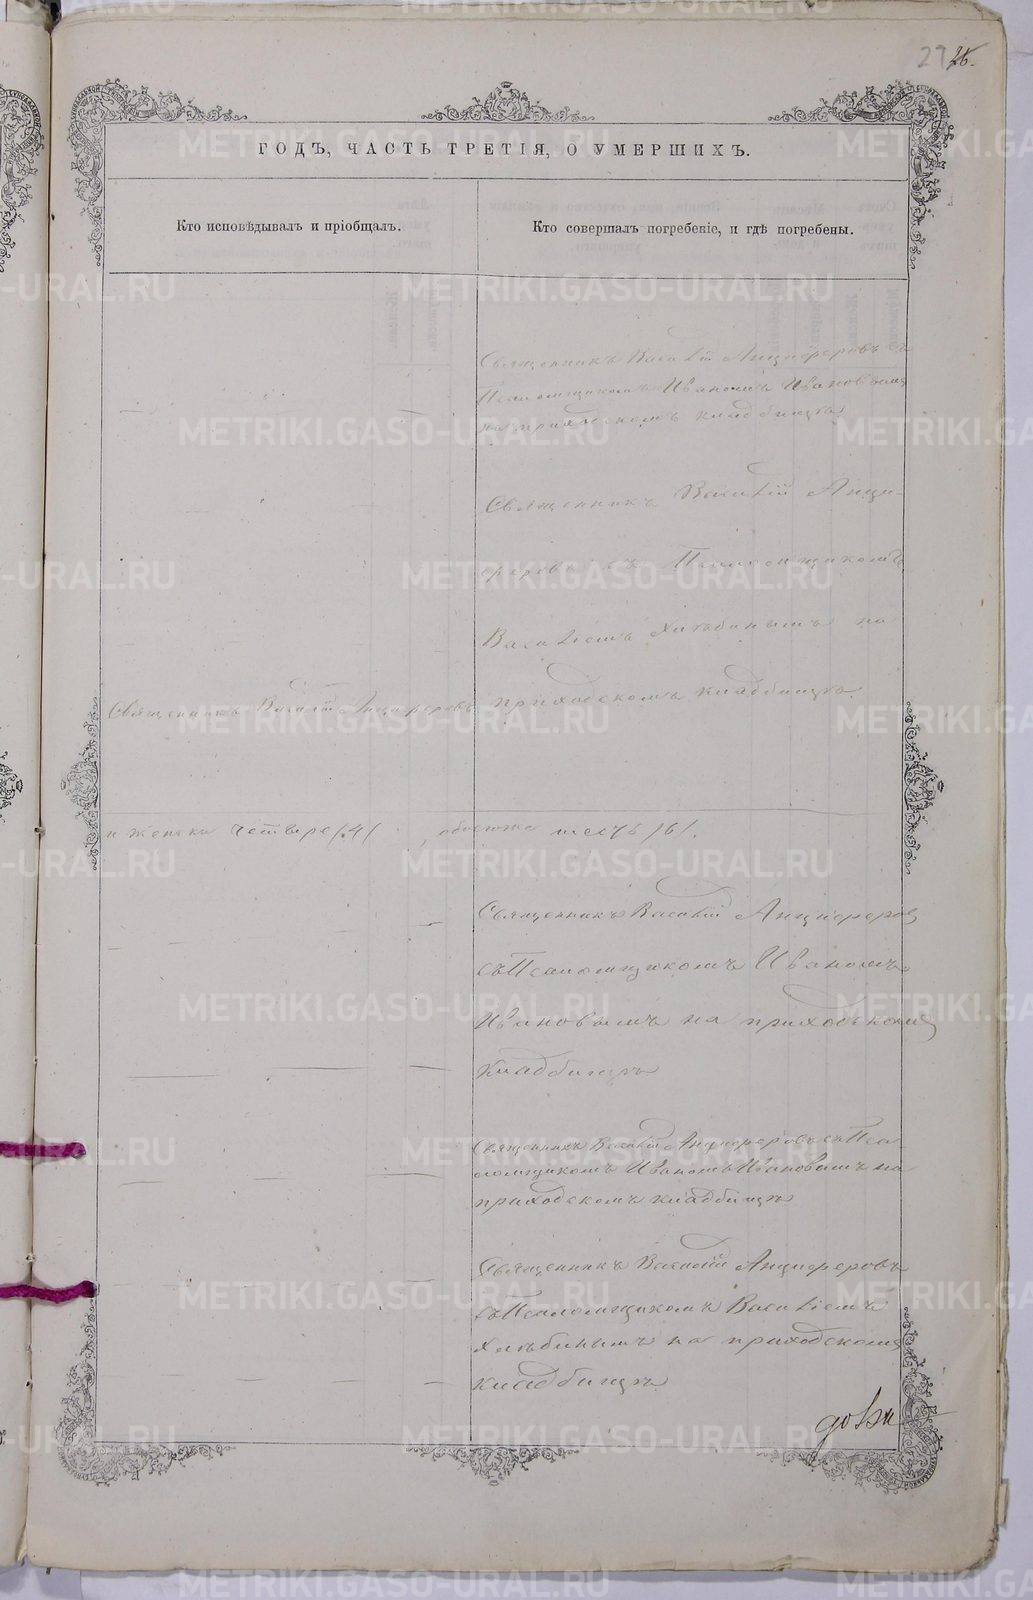 27 26.
ГОДЪ, ЧАСТЬ ТРЕТІЯ, О УМЕРШИХЪ.
Кто исповѣдывалъ и пріобщалъ.
Кто совершалъ погребеніе, и гдѣ погребены.
Священникъ Василій Анциферовъ съ
Псаломщикомъ Иваномъ Ивановымъ
на приходскомъ кладбищѣ
Священникъ Василій Анци-
феровъ съ Псаломщикомъ
Василіемъ Хлѣбинымъ на
Священникъ Василій Анциферовъ
приходскомъ кладбищѣ
и женска четыре /4/ обоего шесть /6/.
Священникъ Василій Анциферов
съ Псаломщикомъ Иваномъ
Ивановымъ на приходскомъ
кладбищѣ
Священникъ Василій Анциферовъ съ Пса
ломщикомъ Иваномъ Ивановымъ на
приходскомъ кладбищѣ
Священникъ Василій Анциферовъ
съ Псаломщикомъ Василіемъ
Хлѣбинымъ на приходскомъ
кладбищѣ
METRIKI.GASO-URAL.RU